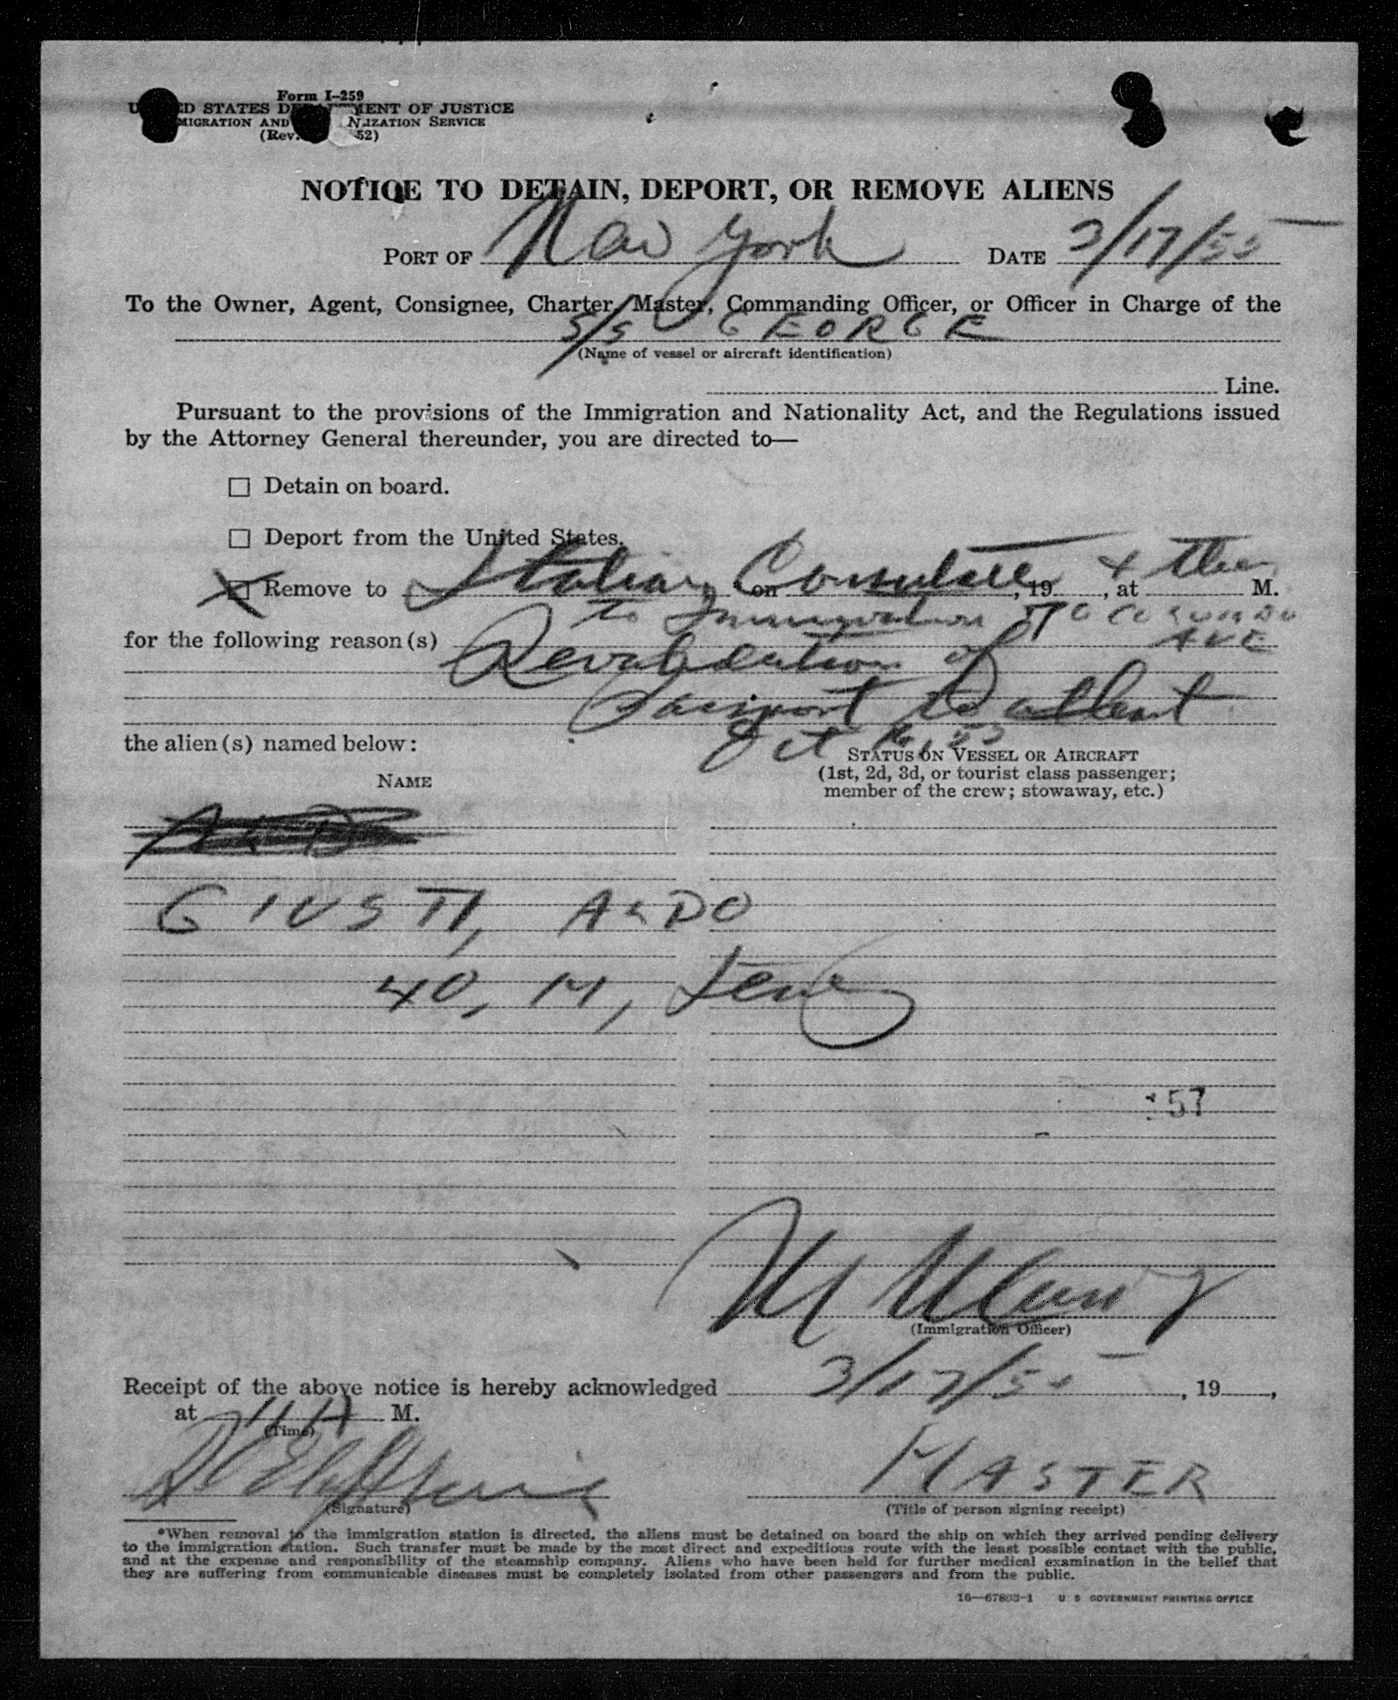 Form I-259
UNITED STATES DEPARTMENT OF JUSTICE
IMMIGRATION AND NATURALIZATION SERVICE
(Rev. 52)
NOTICE TO DETAIN, DEPORT, OR REMOVE ALIENS
PORT OF New York DATE 3/17/55
To the Owner, Agent, Consignee, Charter, Master, Commanding Officer, or Officer in Charge of the
S/S GEORGE
(Name of vessel or aircraft identification)
Line.
Pursuant to the provisions of the Immigration and Nationality Act, and the Regulations issued
by the Attorney General thereunder, you are directed to—
Detain on board.
Deport from the United States.
Remove to Italian Consulate & then, on , 19 , at M.
to Immigration 70 Columbus
AVE
for the following reason(s) Revalidation of
Passport to at least
Oct 16, 55
the alien(s) named below:
NAME
STATUS ON VESSEL OR AIRCRAFT
(1st, 2d, 3d, or tourist class passenger;
member of the crew; stowaway, etc.)
GIUSTI, ALDO
40, M,
57
(Immigration Officer)
Receipt of the above notice is hereby acknowledged 3/17/55, 19 ,
at 11 A M.
(Time)
MASTER
(Signature) (Title of person signing receipt)
*When removal to the immigration station is directed, the aliens must be detained on board the ship on which they arrived pending delivery
to the immigration station. Such transfer must be made by the most direct and expeditious route with the least possible contact with the public,
and at the expense and responsibility of the steamship company. Aliens who have been held for further medical examination in the belief that
they are suffering from communicable diseases must be completely isolated from other passengers and from the public.
16—67803-1 U S GOVERNMENT PRINTING OFFICE